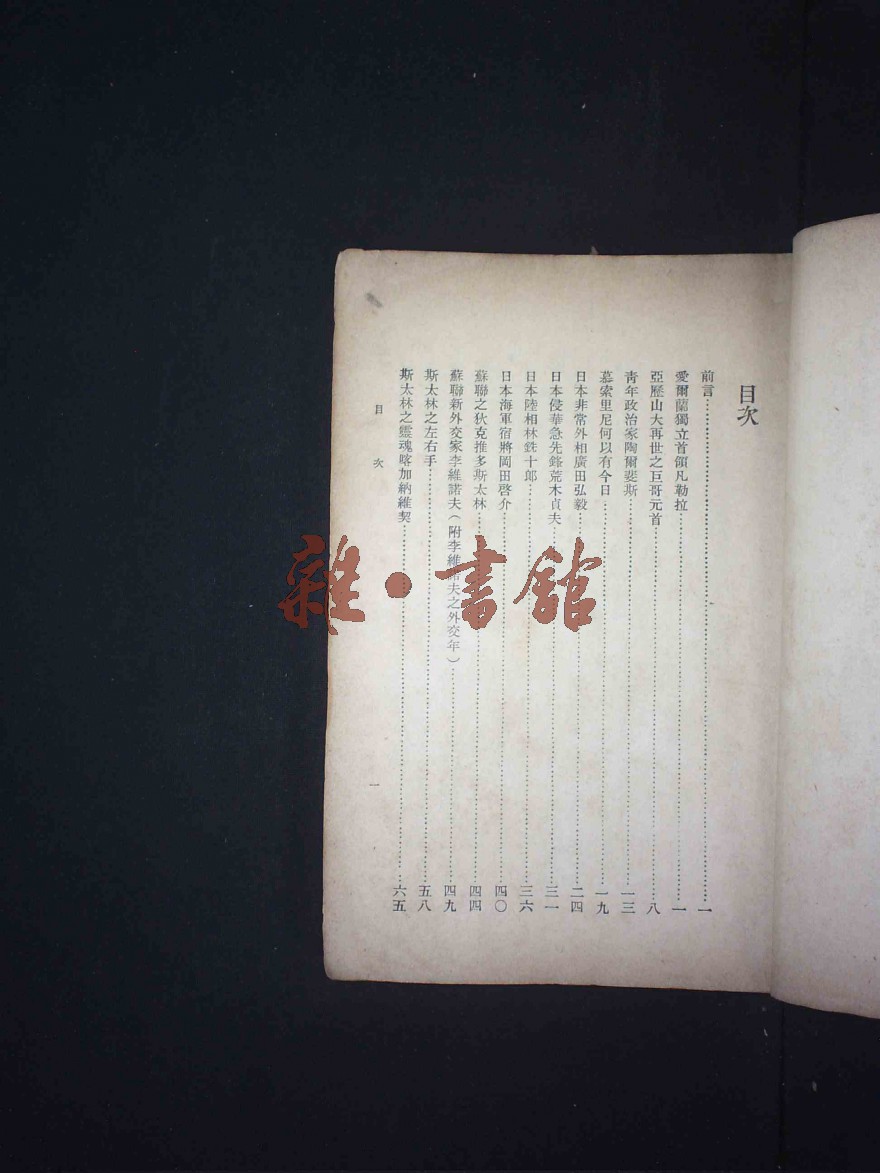 目次
前言…………一
愛爾蘭獨立首領凡勒拉…………一
亞歷山大再世之巨哥元首…………八
靑年政治家陶爾斐斯…………一三
慕索里尼何以有今日…………一九
日本非常外相廣田弘毅…………二四
日本侵華急先鋒荒木貞夫…………三一
日本陸相林銑十郎…………三六
日本海軍宿將岡田啓介…………四〇
蘇聯之狄克推多斯太林…………四四
蘇聯新外交家李維諾夫(附李維諾夫之外交年)…………四九
斯太林之左右手…………五八
斯太林之靈魂喀加納維契…………六五
目次 一
雜·書館